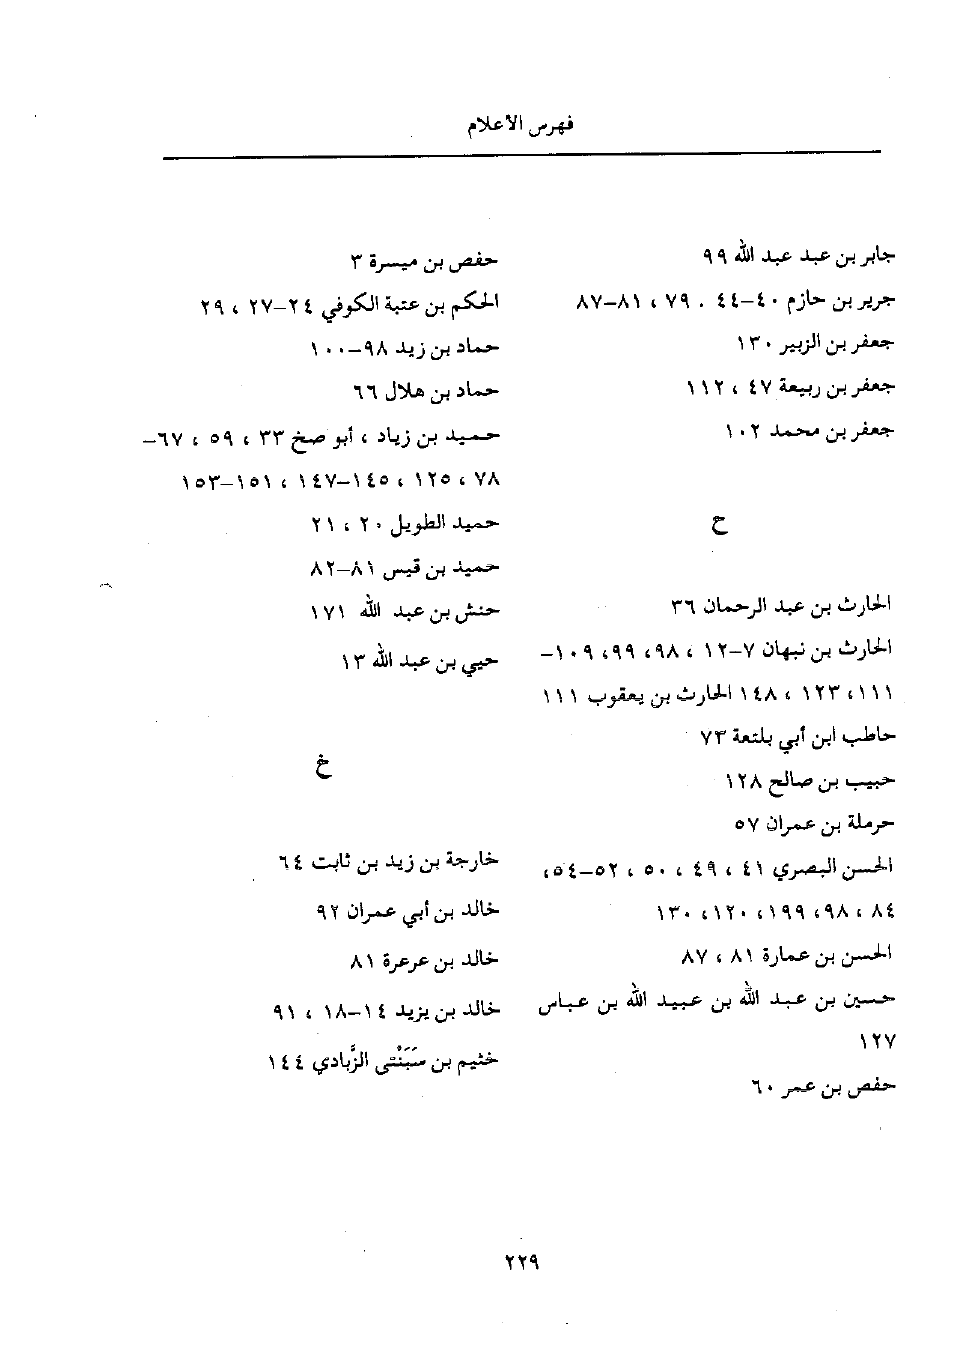 فهرس الأعلام
جابر بن عبد عبد الله ٩٩
جرير بن حازم ٤٠-٤٤ . ٧٩ ، ٨١-٨٧
جعفر بن الزبير ١٣٠
جعفر بن ربيعة ٤٧ ، ١١٢
جعفر بن محمد ١٠٢
ح
الحارث بن عبد الرحمان ٣٦
الحارث بن نبهان ٧-١٢ ، ٩٨، ٩٩، ١٠٩-
١١١، ١٢٣ ، ١٤٨ الحارث بن يعقوب ١١١
حاطب ابن أبي بلتعة ٧٣
حبيب بن صالح ١٢٨
حرملة بن عمران ٥٧
الحسن البصري ٤١ ، ٤٩ ، ٥٠ ، ٥٢-٥٤،
٨٤ ، ٩٨، ١٩٩، ١٢٠، ١٣٠
الحسن بن عمارة ٨١ ، ٨٧
حسين بن عبد الله بن عبيد الله بن عباس
١٢٧
حفص بن عمر ٦٠
حفص بن ميسرة ٣
الحكم بن عتبة الكوفي ٢٤-٢٧ ، ٢٩
حماد بن زيد ٩٨-١٠٠
حماد بن هلال ٦٦
حميد بن زياد ، أبو صخ ٣٣ ، ٥٩ ، ٦٧-
٧٨ ، ١٢٥ ، ١٤٥-١٤٧ ، ١٥١-١٥٣
حميد الطويل ٢٠ ، ٢١
حميد بن قيس ٨١-٨٢
حنش بن عبد الله ١٧١
حيي بن عبد الله ١٣
خ
خارجة بن زيد بن ثابت ٦٤
خالد بن أبي عمران ٩٢
خالد بن عرعرة ٨١
خالد بن يزيد ١٤-١٨ ، ٩١
خثيم بن سَبَنْتى الزَّبادي ١٤٤
٢٢٩